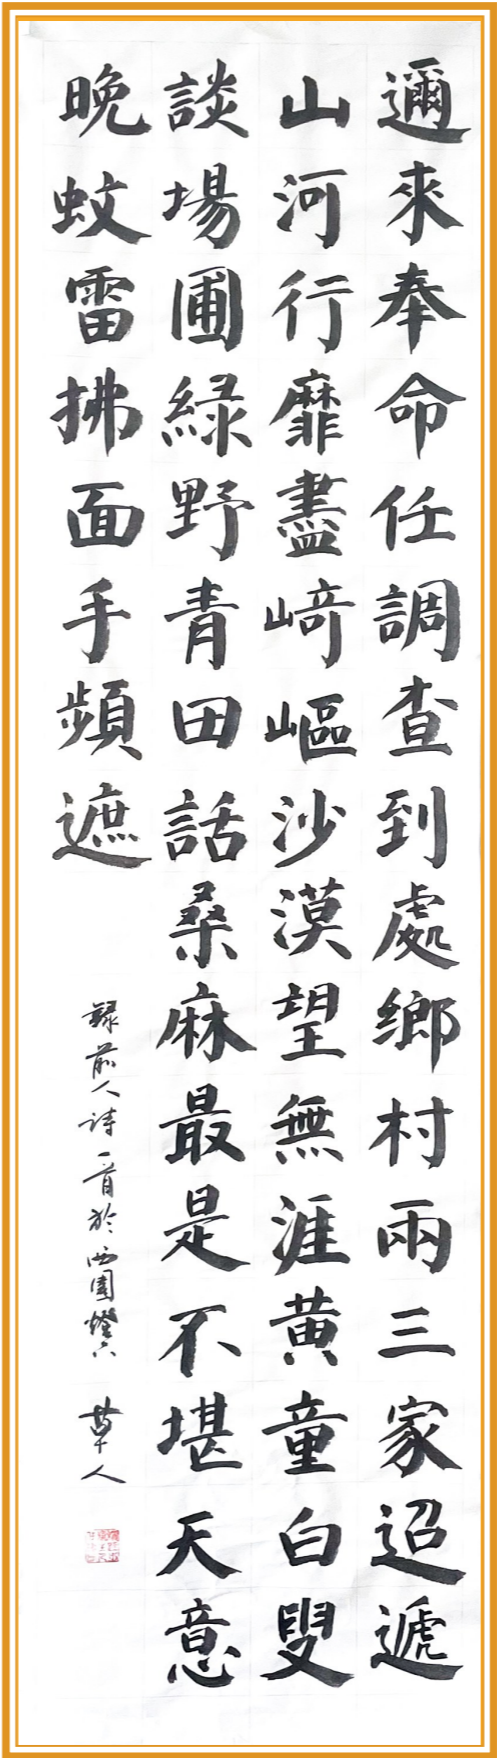 邇來奉命任調查到處鄉村兩三家迢遞
山河行靡盡崎嶇沙漠望無涯黄童白叟
談場圃綠野青田話桑麻最是不堪天意
晚蚊雷拂面手頻遮
錄前人詩一首於西園燈下
草人